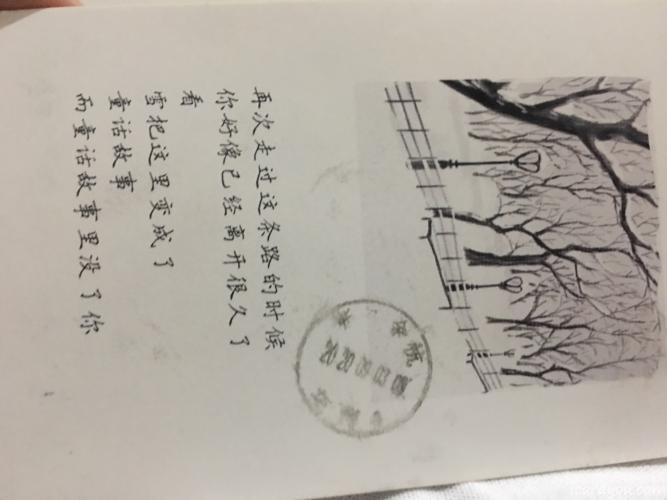 再次走过这条路的时候
你好像已经离开很久了
看
雪把这里变成了
童话故事
而童话故事里没了你